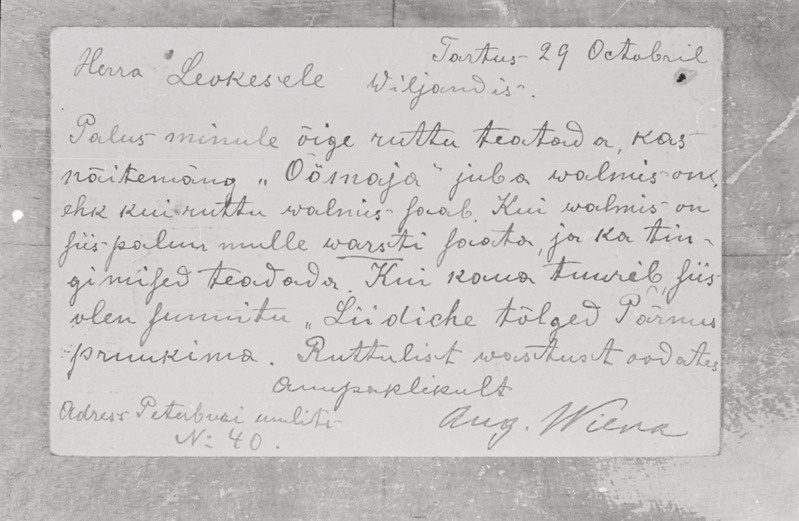 Tartus 29 Octobril
Herra Leokesele Wiljandis.
Palus minule õige ruttu teatada, kas
näitemäng „Öömaja" juba walmis on,
ehk kui ruttu walmis saab. Kui walmis on
siis palun mulle warsti saata, ja ka tin-
gimised teadada. Kui kaua tuureb, siis
olen sunnitu „Liidiche tõlged Pärnus
pruukima. Ruttulist wastust oodates
Auupaklikult
Aug. Wiera
Adress Peterburi uulits
No 40.